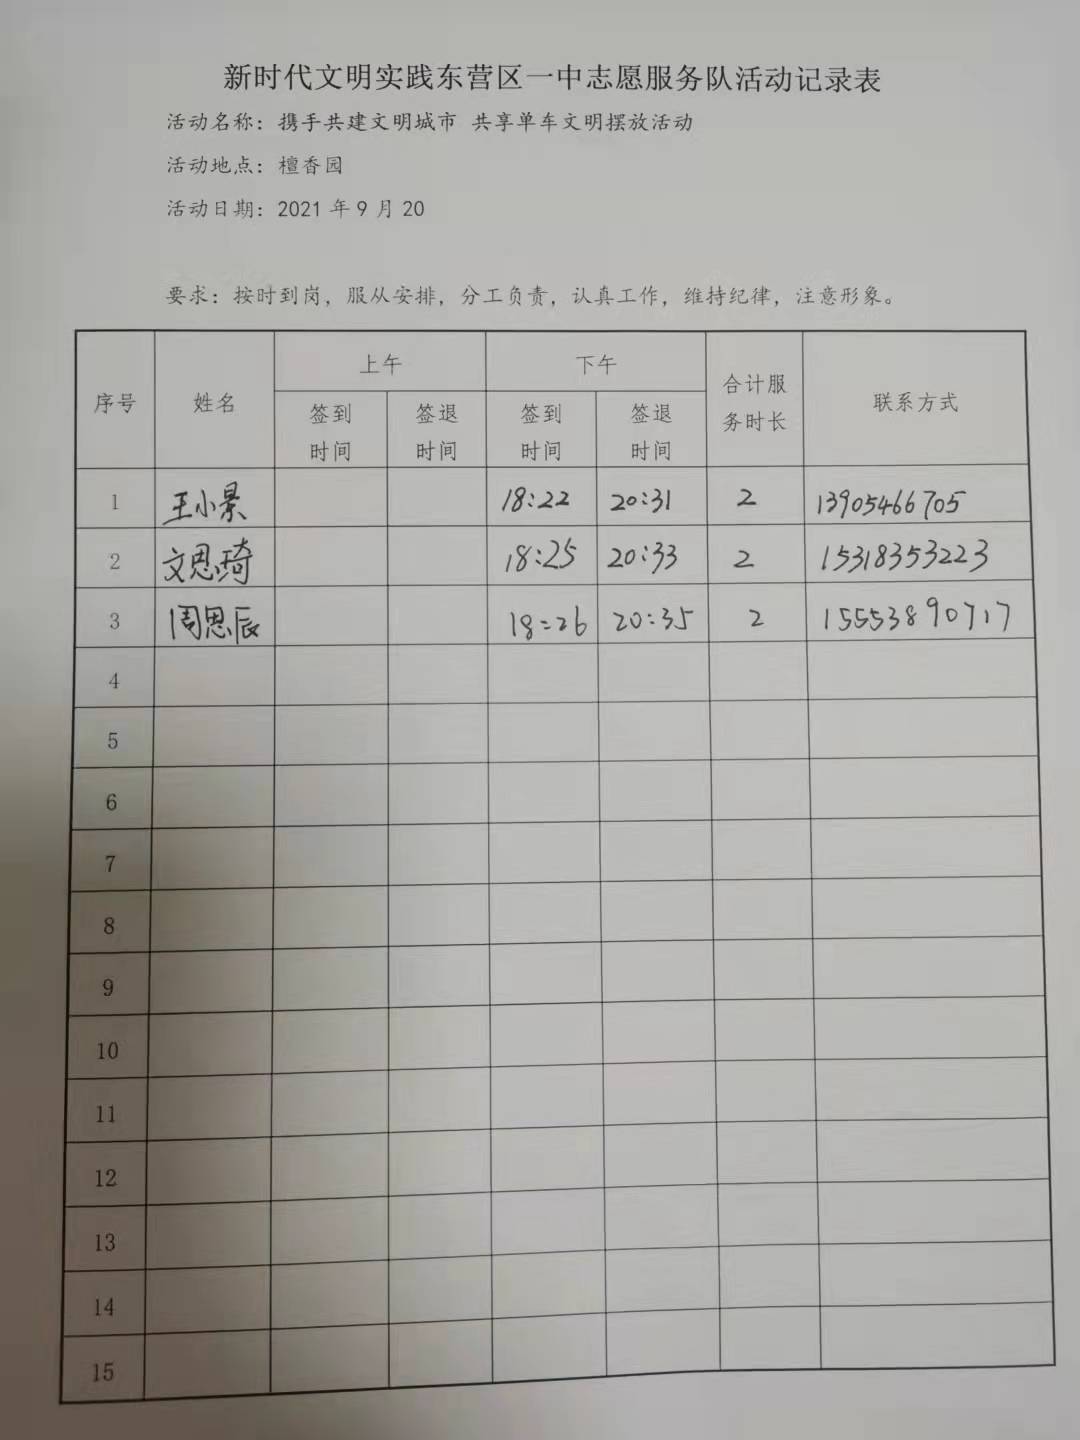 新时代文明实践东营区一中志愿服务队活动记录表
活动名称：携手共建文明城市 共享单车文明摆放活动
活动地点：檀香园
活动日期：2021年9月20
要求：按时到岗，服从安排，分工负责，认真工作，维持纪律，注意形象。
序号 姓名 上午 下午 合计服务时长 联系方式
签到时间 签退时间 签到时间 签退时间
1 王小景 18:22 20:31 2 13905466705
2 文思琦 18:25 20:33 2 15318353223
3 周思辰 18:26 20:35 2 15553890717
4
5
6
7
8
9
10
11
12
13
14
15